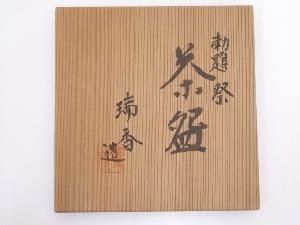 勅題 祭
茶盌
瑞香
造